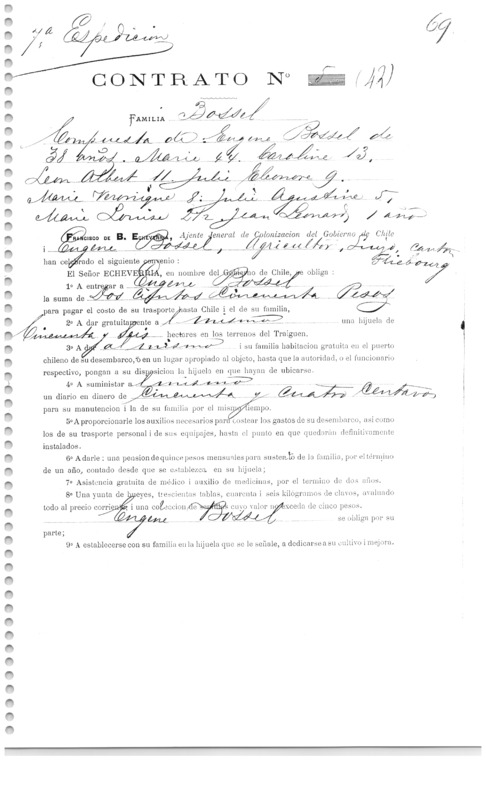 7ª Espedicion
69
CONTRATO Nº 5 (42)
FAMILIA Bossel
Compuesta de: Eugene Bossel de
38 años. Marie 44. Caroline 13.
Leon Albert 11 Julie Eleonore 9.
Marie Veronique 8. Julie Agustine 5,
Marie Louise 2½ Jean Leonard, 1 año
FRANCISCO DE B. ECHEVERRÍA, Ajente Jeneral de Colonizacion del Gobierno de Chile
i Eugene Bossel, Agricultor, Suizo, Canton
Friebourg
han celebrado el siguiente convenio:
El Señor ECHEVERRÍA, en nombre del Gobierno de Chile, se obliga:
1º A entregar a Eugene Bossel
la suma de Dos Cientos Cincuenta Pesos
para pagar el costo de su trasporte hasta Chile i el de su familia,
2º A dar gratuitamente al mismo una hijuela de
Cincuenta y Seis hectares en los terrenos del Traiguen.
3º A dar al mismo i su familia habitacion gratuita en el puerto
chileno de su desembarco, o en un lugar apropiado al objeto, hasta que la autoridad, o el funcionario
respectivo, pongan a su disposicion la hijuela en que hayan de ubicarse.
4º A suministar al mismo
un diario en dinero de Cincuenta y cuatro Centavos
para su manutencion i la de su familia por el mismo tiempo.
5º A proporcionarle los auxilios necesarios para costear los gastos de su desembarco, asi como
los de su trasporte personal i de sus equipajes, hasta el punto en que quedarán definitivamente
instalados.
6º A darle: una pension de quince pesos mensuales para sustento de la familia, por el término
de un año, contado desde que se establezca en su hijuela;
7º Asistencia gratuita de médico i auxilio de medicinas, por el termino de dos años.
8º Una yunta de bueyes, trescientas tablas, cuarenta i seis kilógramos de clavos, avaluado
todo al precio corriente i una coleccion de semillas cuyo valor no exceda de cinco pesos.
Eugene Bossel se obliga por su
parte;
9º A establecerse con su familia en la hijuela que se le señale, a dedicarse a su cultivo i mejora.